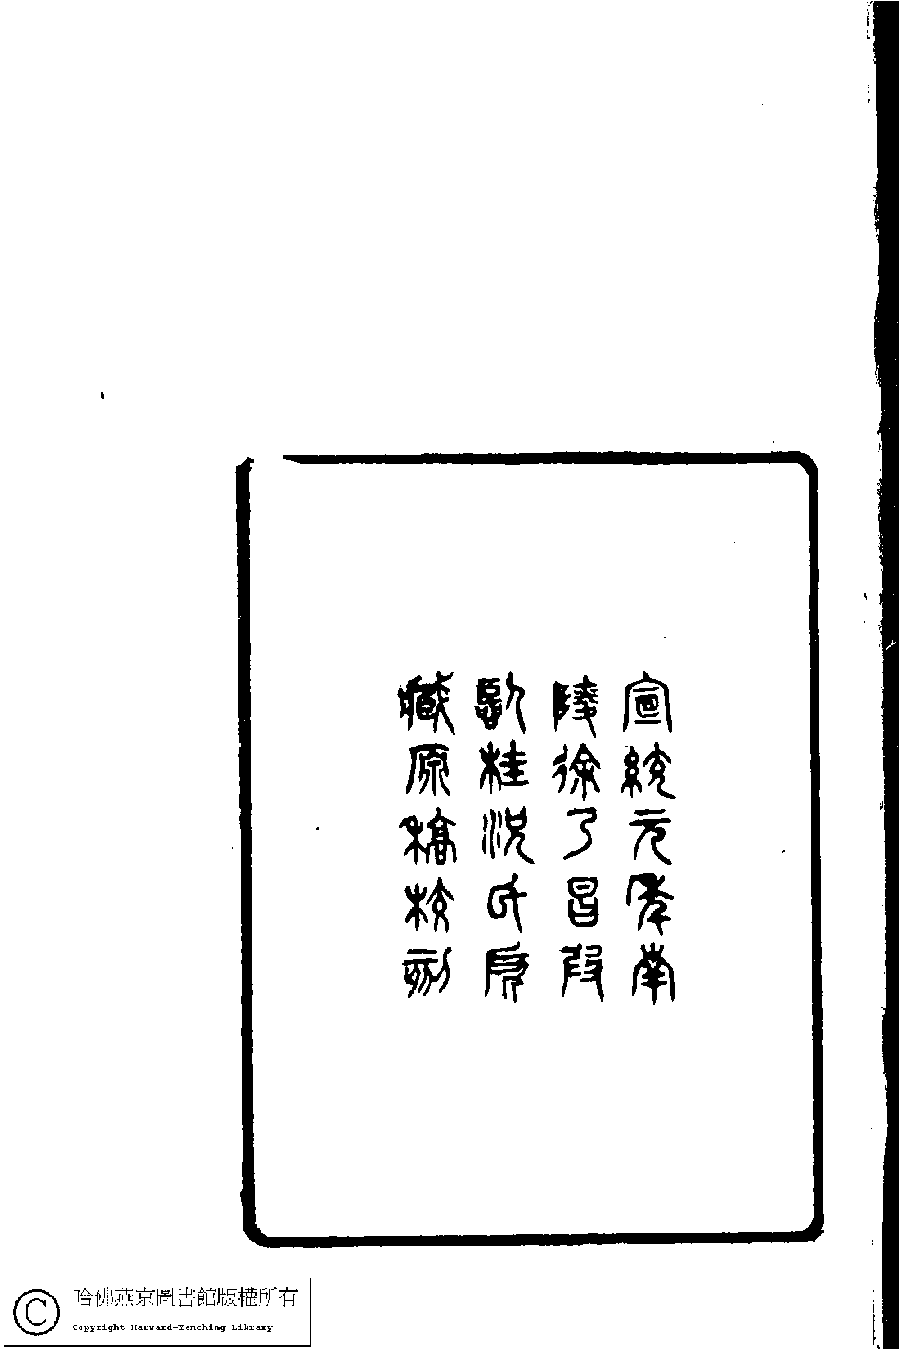 宣統元年南
陵徐乃昌叚
臨桂況氏所
臧原稿校刻
哈佛燕京圖書館版權所有
Copyright Harvard-Yenching Library